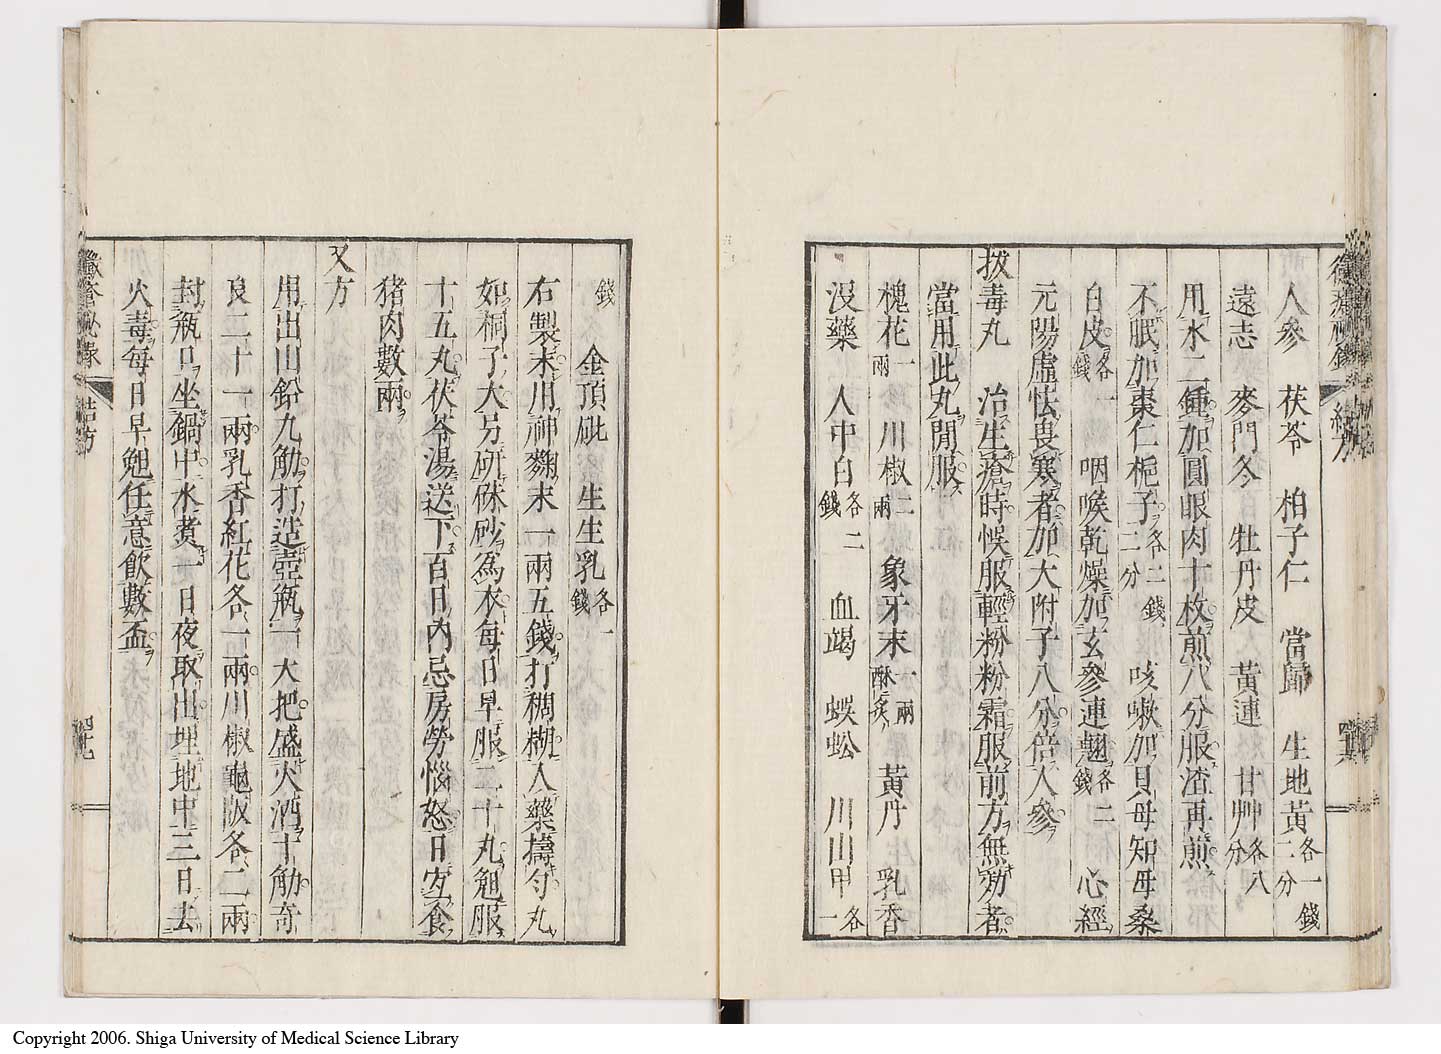 人參 茯苓 柏子仁 當歸 生地黃各一錢二分
遠志 麥門冬 牡丹皮 黃連 甘艸各八分
用水二鍾加圓眼肉十枚煎八分服渣再煎
不眠加棗仁梔子各二錢二分 咳嗽加貝母知母桑
白皮各一錢 咽喉乾燥加玄參連翹各二錢 心經
元陽虛怯畏寒者加大附子八分倍人參
拔毒丸 治生瘡時悞服輕粉粉霜服前方無効者
當用此丸間服
槐花二兩 川椒二兩 象牙末一兩酥炙 黃丹 乳香
沒藥 人中白各二錢 血竭 蜈蚣 川山甲各一
錢 金頂砒 生生乳各一錢
右製末用神麴末一兩五錢打稠糊入藥擣勻丸
如桐子大另研硃砂為衣每日早服二十丸晚服
十五丸茯苓湯送下百日內忌房勞惱怒日宜食
猪肉數兩
又方
用出山鉛九觔打造壺瓶一大把盛火酒十觔奇
良二十一兩乳香紅花各一兩川椒龜版各二兩
封瓶口坐鍋中水煮一日夜取出埋地中三日去
火毒每日早晚任意飲數盃
黴瘡秘錄 結方 四七